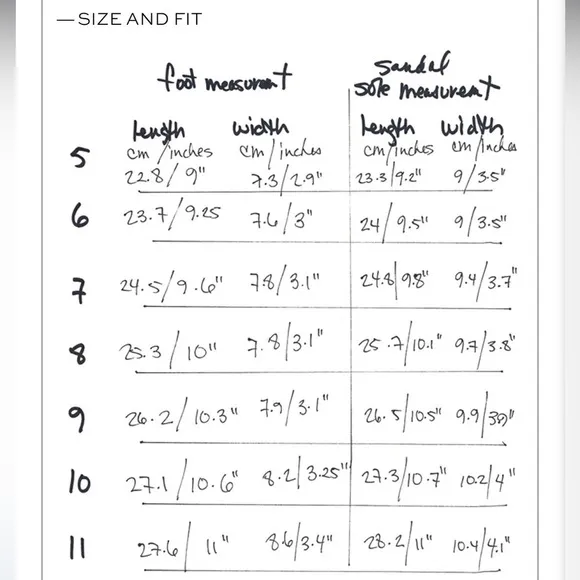 — SIZE AND FIT
foot measurement
sandal
sole measurement
length width length width
5 cm/inches cm/inches cm/inches cm/inches
22.8/9" 7.3/2.9" 23.3/9.2" 9/3.5"
6 23.7/9.25 7.6/3" 24/9.5" 9/3.5"
7 24.5/9.6" 7.8/3.1" 24.8/9.8" 9.4/3.7"
8 25.3/10" 7.8/3.1" 25.7/10.1" 9.7/3.8"
9 26.2/10.3" 7.9/3.1" 26.5/10.5" 9.9/
10 27.1/10.6" 8.2/3.25" 27.3/10.7" 10.2/4"
11 27.6/11" 8.6/3.4" 28.2/11" 10.4/4.1"